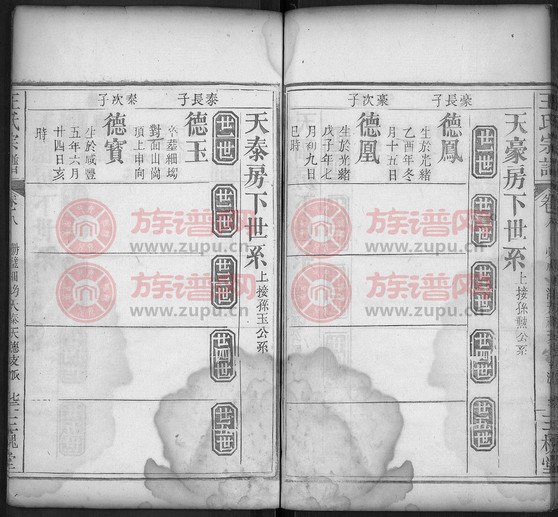 天豪房下世系 上接孫勲公系
廿一世
廿二世
廿三世
廿四世
廿五世
豪長子
德鳳
生於光緒
乙酉年冬
月十五日
豪次子
德凰
生於光緒
戊子年七
月初九日
巳時
天泰房下世系 上接孫玉公系
廿一世
廿二世
廿三世
廿四世
廿五世
泰長子
德玉
卒葬細塆
對面山崗
項上申向
泰次子
德寶
生於咸豐
五年六月
廿四日亥
時
王氏宗譜
卷八
三槐堂
族谱网
www.zupu.cn
族谱网
www.zupu.cn